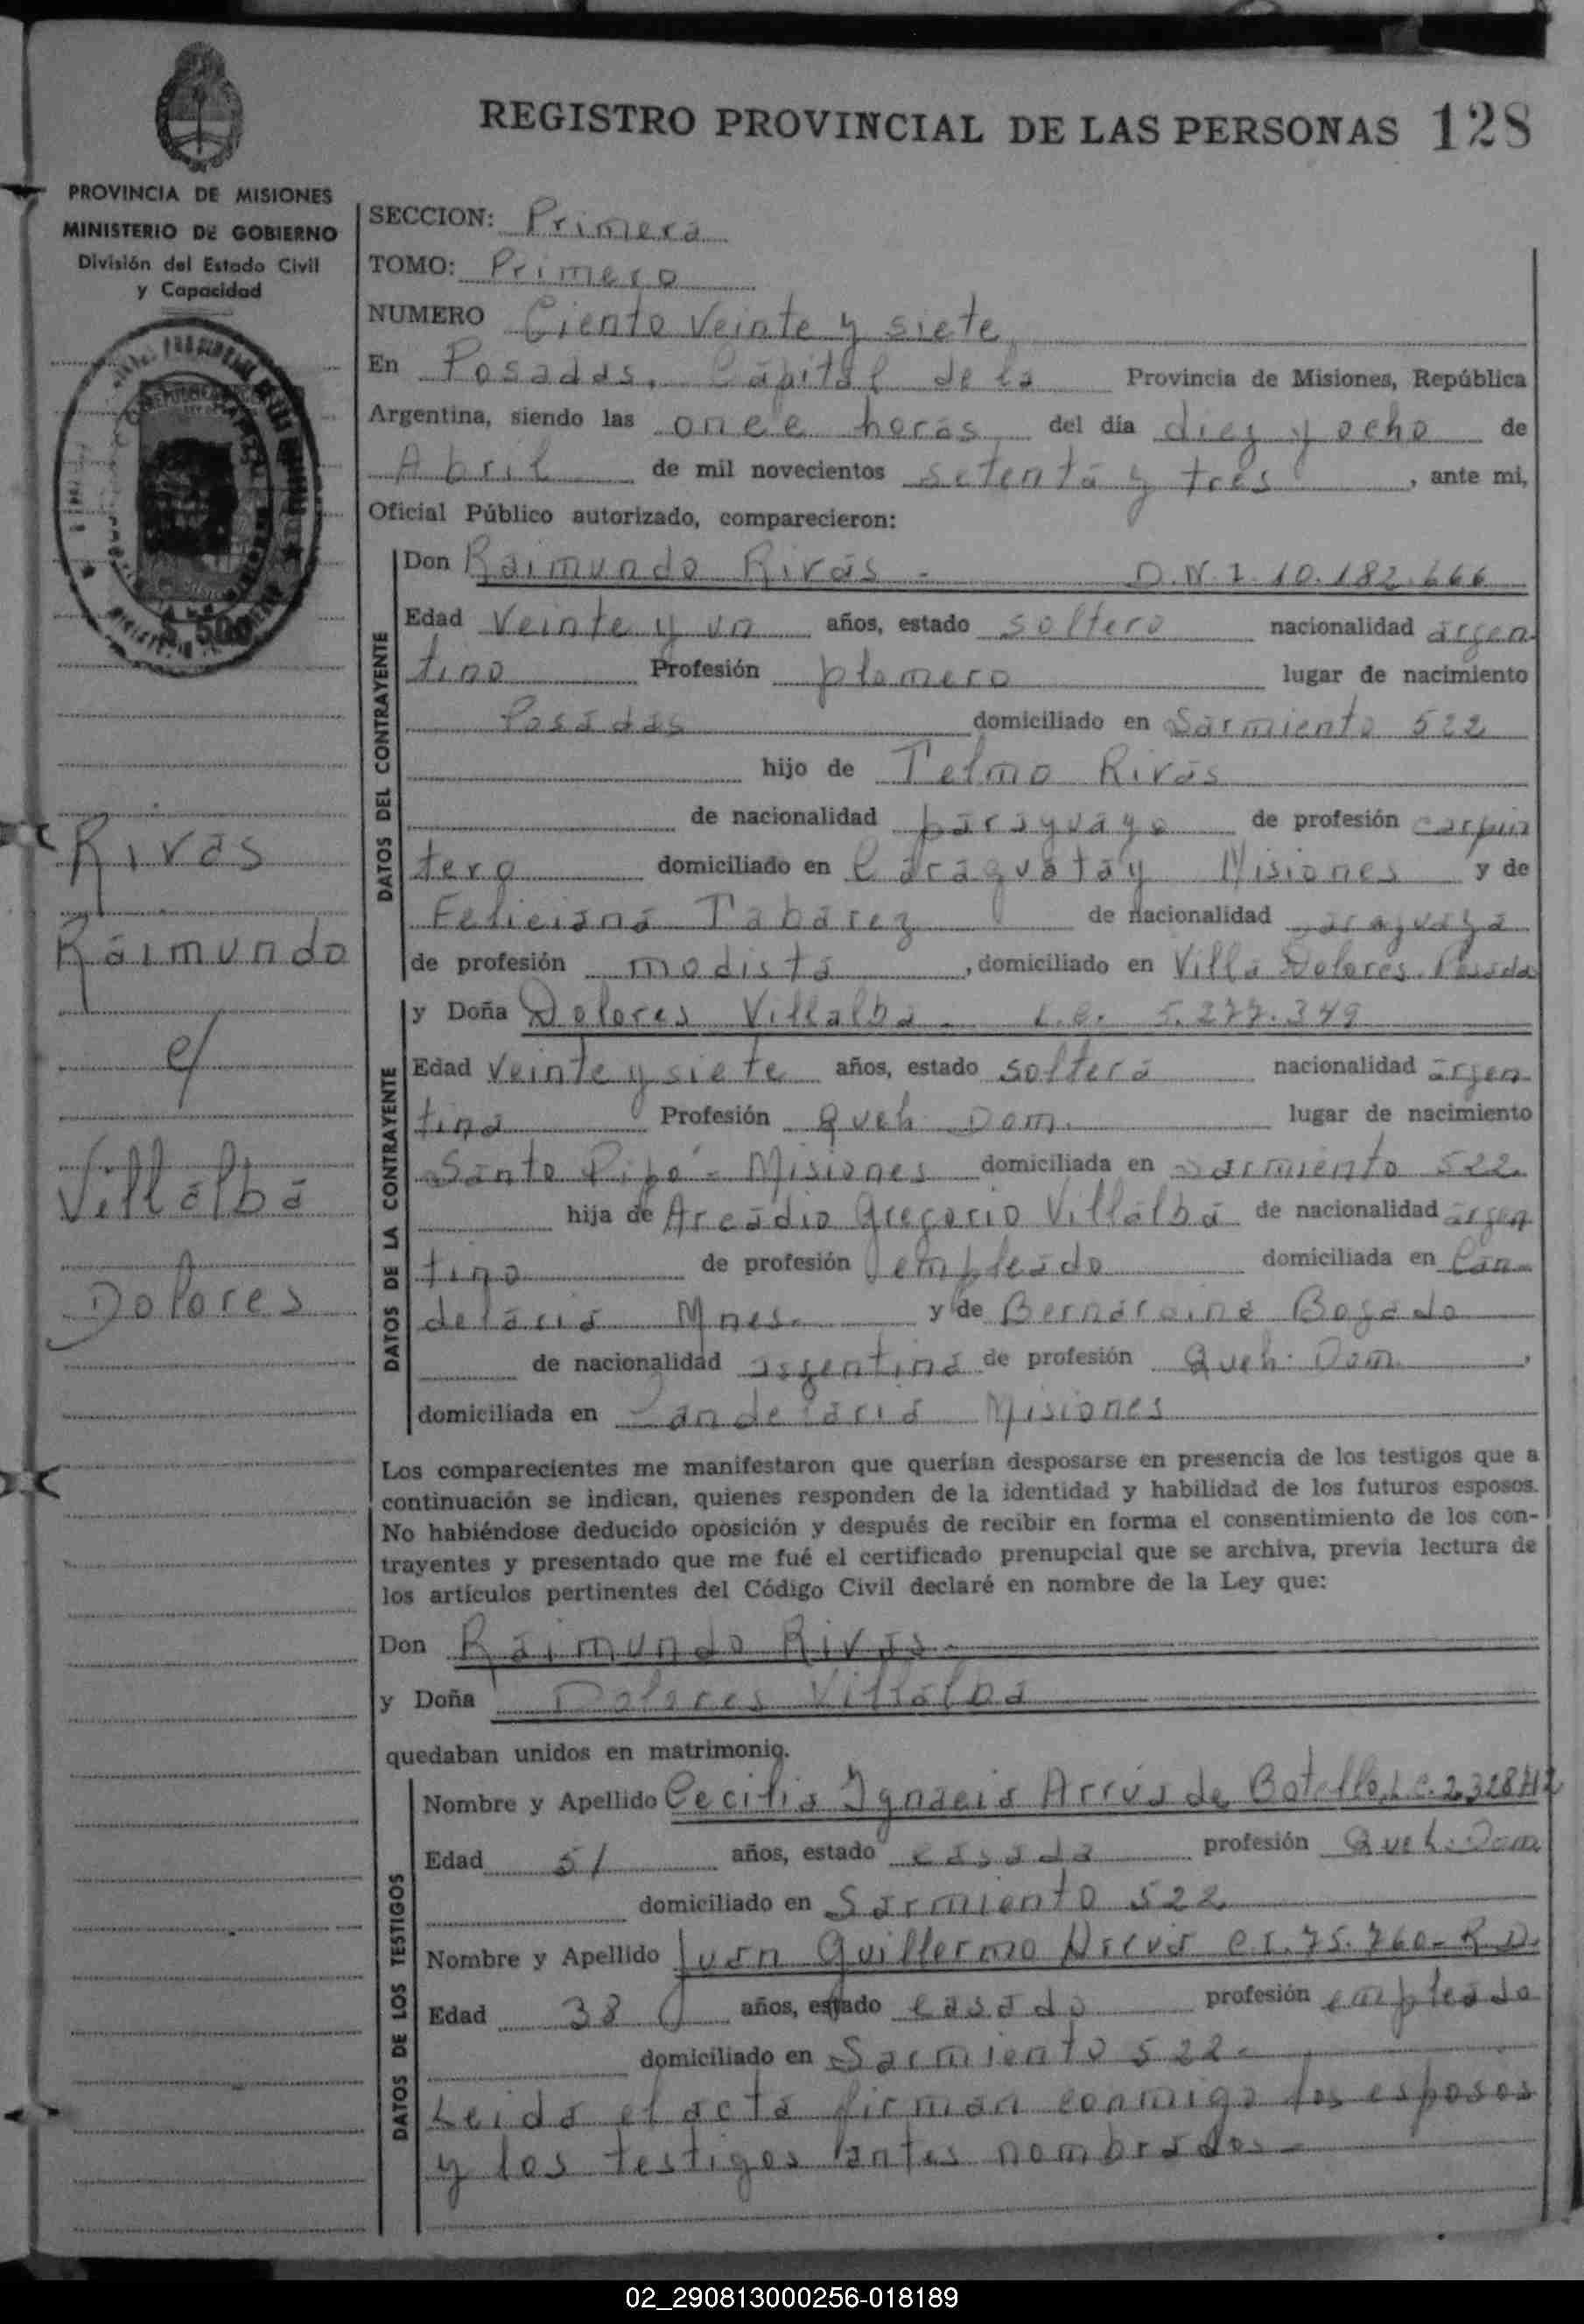 REGISTRO PROVINCIAL DE LAS PERSONAS 128
PROVINCIA DE MISIONES
MINISTERIO DE GOBIERNO
División del Estado Civil
y Capacidad
SECCION: Primera
TOMO: Primero
NUMERO Ciento Veinte y siete
En Posadas, Capital de la Provincia de Misiones, República
Argentina, siendo las once horas del día diez y ocho de
Abril de mil novecientos setenta y tres, ante mi,
Oficial Público autorizado, comparecieron:
DATOS DEL CONTRAYENTE
Don Raimundo Rivas - D.N.I. 10.182.666
Edad Veinte y un años, estado soltero nacionalidad argen
tino Profesión plomero lugar de nacimiento
Posadas domiciliado en Sarmiento 522
hijo de Telmo Rivas
de nacionalidad paraguayo de profesión carpin
tero domiciliado en Caraguatay Misiones y de
Feliciana Tabarez de nacionalidad paraguaya
de profesión modista, domiciliado en Villa Dolores Posada
DATOS DE LA CONTRAYENTE
y Doña Dolores Villalba - L.C. 5.277.349
Edad Veinte y siete años, estado soltera nacionalidad argen
tina Profesión Queh. Dom. lugar de nacimiento
Santo Pipó - Misiones domiciliada en Sarmiento 522
hija de Arcadio Gregorio Villalba de nacionalidad argen
tino de profesión empleado domiciliada en Can
delaria Mnes. y de Bernardina Bogado
de nacionalidad argentina de profesión Queh. Dom,
domiciliada en Candelaria Misiones
Rivas
Raimundo
c/
Villalba
Dolores
Los comparecientes me manifestaron que querían desposarse en presencia de los testigos que a
continuación se indican, quienes responden de la identidad y habilidad de los futuros esposos.
No habiéndose deducido oposición y después de recibir en forma el consentimiento de los con-
trayentes y presentado que me fué el certificado prenupcial que se archiva, previa lectura de
los artículos pertinentes del Código Civil declaré en nombre de la Ley que:
Don Raimundo Rivas -
y Doña Dolores Villalba
quedaban unidos en matrimonio.
DATOS DE LOS TESTIGOS
Nombre y Apellido Cecilia Ignacia Arrúa de Botello, L.C.
Edad 51 años, estado casada profesión Queh. Dom
domiciliado en Sarmiento 522
Nombre y Apellido Juan Guillermo C.I. 75.760 - R.D.
Edad 38 años, estado casado profesión empleado
domiciliado en Sarmiento 522 -
Leida el acta firman conmigo los esposos
y los testigos antes nombrados -
02_290813000256-018189